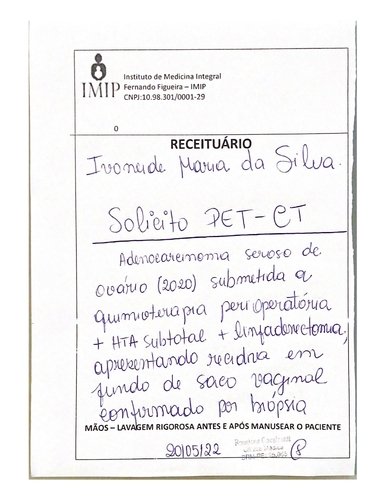 IMIP
Instituto de Medicina Integral
Fernando Figueira – IMIP
CNPJ:10.98.301/0001-29
0
RECEITUÁRIO
Ivoneide Maria da Silva.
Solicito PET-CT
Adenocarcinoma seroso de
ovário (2020) submetida a
quimioterapia perioperatória
+ HTA subtotal + linfadenectomia,
apresentando recidiva em
fundo de saco vaginal
confirmado por biópsia
MÃOS – LAVAGEM RIGOROSA ANTES E APÓS MANUSEAR O PACIENTE
20/05/22